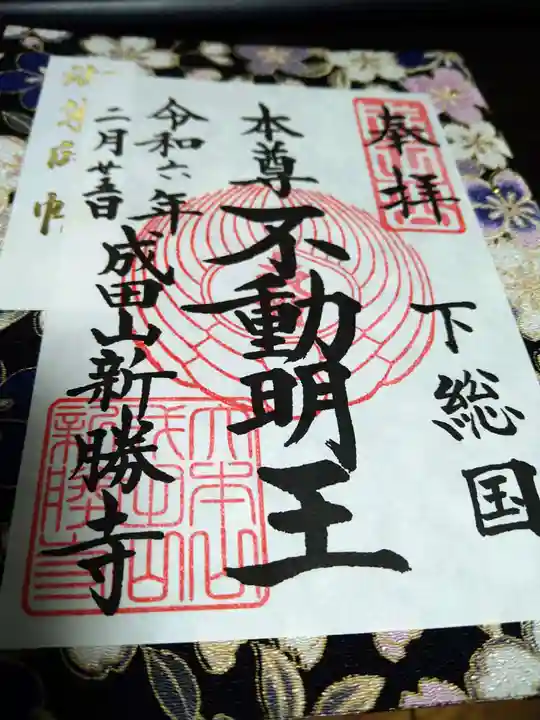 奉拝
下総国
本尊
不動明王
令和六年
二月廿五日
成田山新勝寺
大本山
成田山
新勝寺